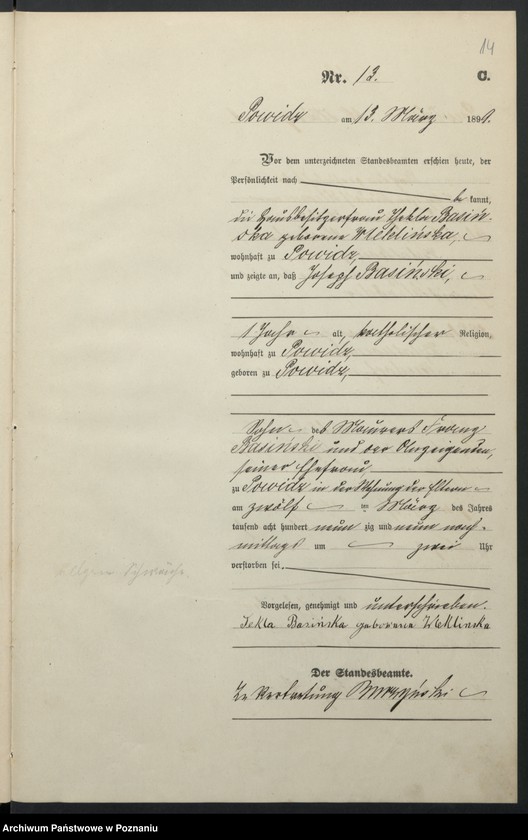 14
Nr. 13. C.
Powidz am 13. März 1899.
Vor dem unterzeichneten Standesbeamten erschien heute, der
Persönlichkeit nach
be kannt,
die Hausbesitzerfrau Thekla Basiń-
ska geborene Weklińska,
wohnhaft zu Powidz,
und zeigte an, daß Joseph Basiński,
1 Jahr alt, katholischer Religion,
wohnhaft zu Powidz,
geboren zu Powidz,
Sohn des Maurers Franz
Basiński und der Anzeigenden,
seiner Ehefrau
zu Powidz in der Wohnung der Eltern
am zwölf ten März des Jahres
tausend acht hundert neun zig und neun nach-
mittags um zwei Uhr
verstorben sei.
Schwäche.
Vorgelesen, genehmigt und unterschrieben.
Tekla Basińska geborena Weklinska
Der Standesbeamte.
In Vertretung
Archiwum Państwowe w Poznaniu